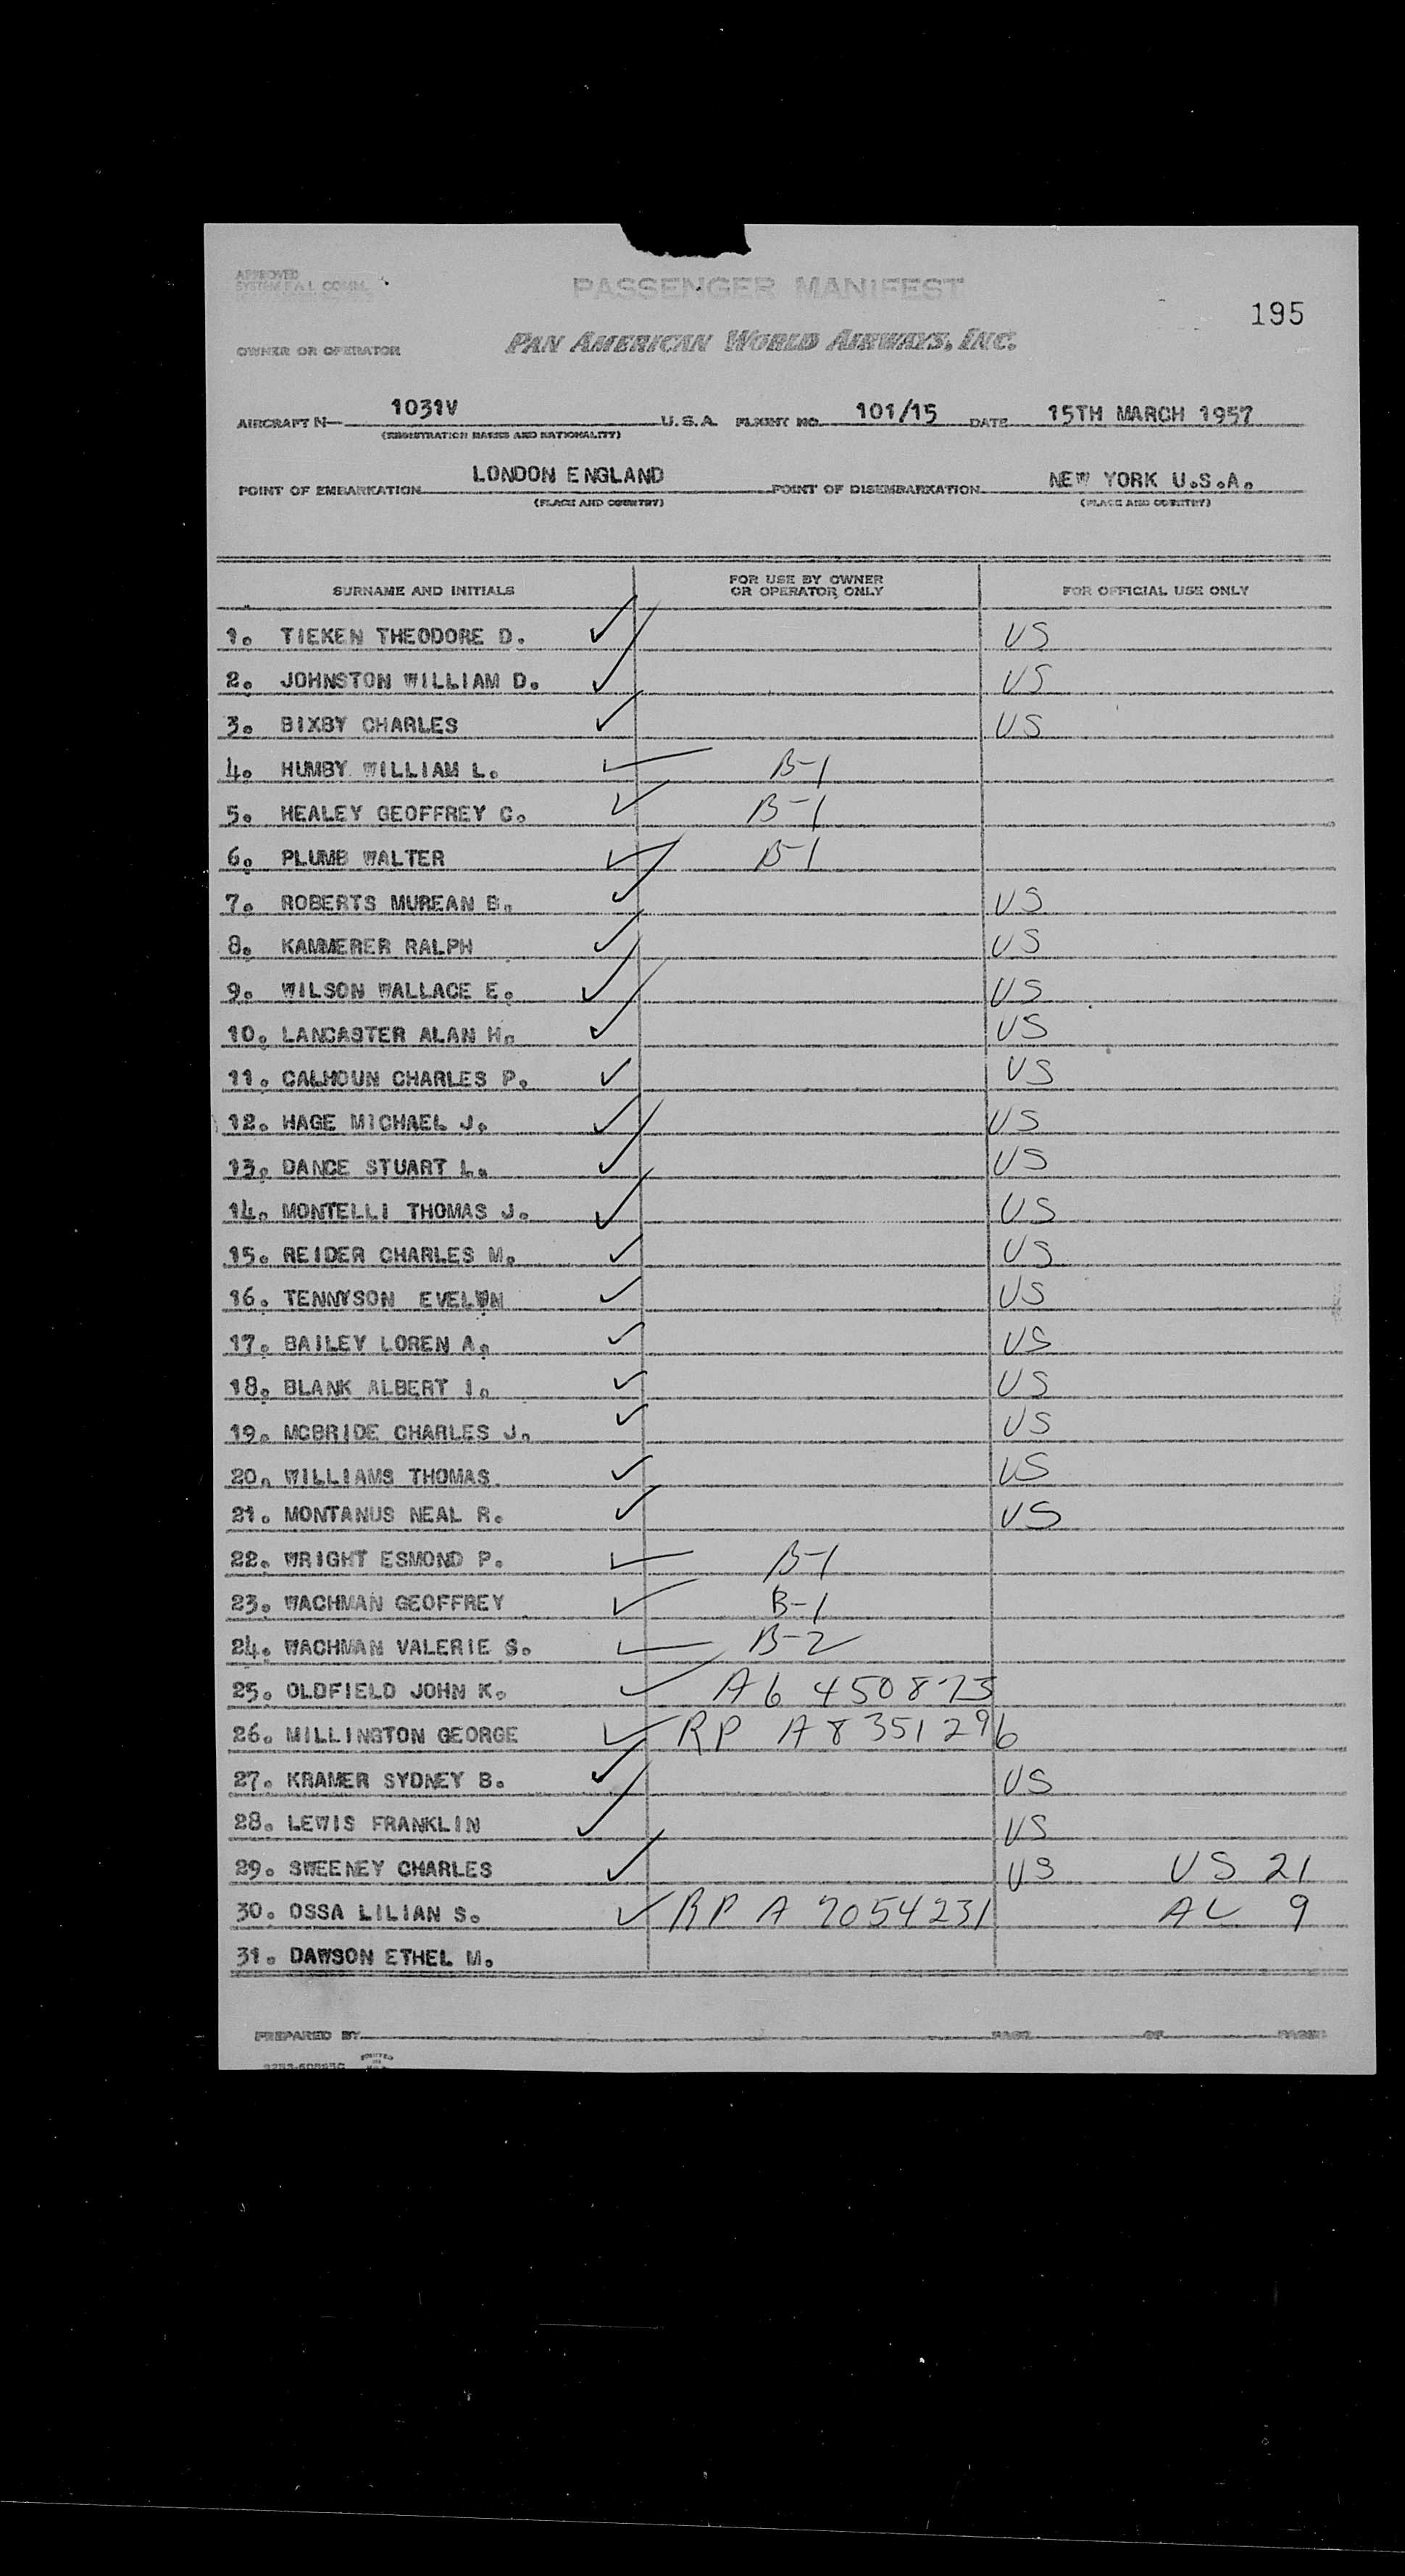 APPROVED
SYSTEM F.A.L. COMM.
PASSENGER MANIFEST
195
OWNER OR OPERATOR
PAN AMERICAN WORLD AIRWAYS, INC.
AIRCRAFT N- 1031V U.S.A. FLIGHT NO. 101/15 DATE 15TH MARCH 1957
(REGISTRATION MARKS AND NATIONALITY)
POINT OF EMBARKATION LONDON ENGLAND POINT OF DISEMBARKATION NEW YORK U.S.A.
(PLACE AND COUNTRY) (PLACE AND COUNTRY)
SURNAME AND INITIALS FOR USE BY OWNER OR OPERATOR ONLY FOR OFFICIAL USE ONLY
1. TIEKEN THEODORE D. ✓ US
2. JOHNSTON WILLIAM D. ✓ US
3. BIXBY CHARLES ✓ US
4. HUMBY WILLIAM L. ✓ B-1
5. HEALEY GEOFFREY C. ✓ B-1
6. PLUMB WALTER ✓ B-1
7. ROBERTS MUREAN B. ✓ US
8. KAMMERER RALPH ✓ US
9. WILSON WALLACE E. ✓ US
10. LANCASTER ALAN H. ✓ US
11. CALHOUN CHARLES P. ✓ US
12. HAGE MICHAEL J. ✓ US
13. DANCE STUART L. ✓ US
14. MONTELLI THOMAS J. ✓ US
15. REIDER CHARLES M. ✓ US
16. TENNYSON EVELYN ✓ US
17. BAILEY LOREN A. ✓ US
18. BLANK ALBERT I. ✓ US
19. MCBRIDE CHARLES J. ✓ US
20. WILLIAMS THOMAS ✓ US
21. MONTANUS NEAL R. ✓ US
22. WRIGHT ESMOND P. ✓ B-1
23. WACHMAN GEOFFREY ✓ B-1
24. WACHMAN VALERIE S. ✓ B-2
25. OLDFIELD JOHN K. ✓ A6 450873
26. MILLINGTON GEORGE ✓ RP A8351296
27. KRAMER SYDNEY B. ✓ US
28. LEWIS FRANKLIN ✓ US
29. SWEENEY CHARLES ✓ US US 21
30. OSSA LILIAN S. ✓ RP A 7054231 AL 9
31. DAWSON ETHEL M.
PREPARED BY PAGE OF PAGES